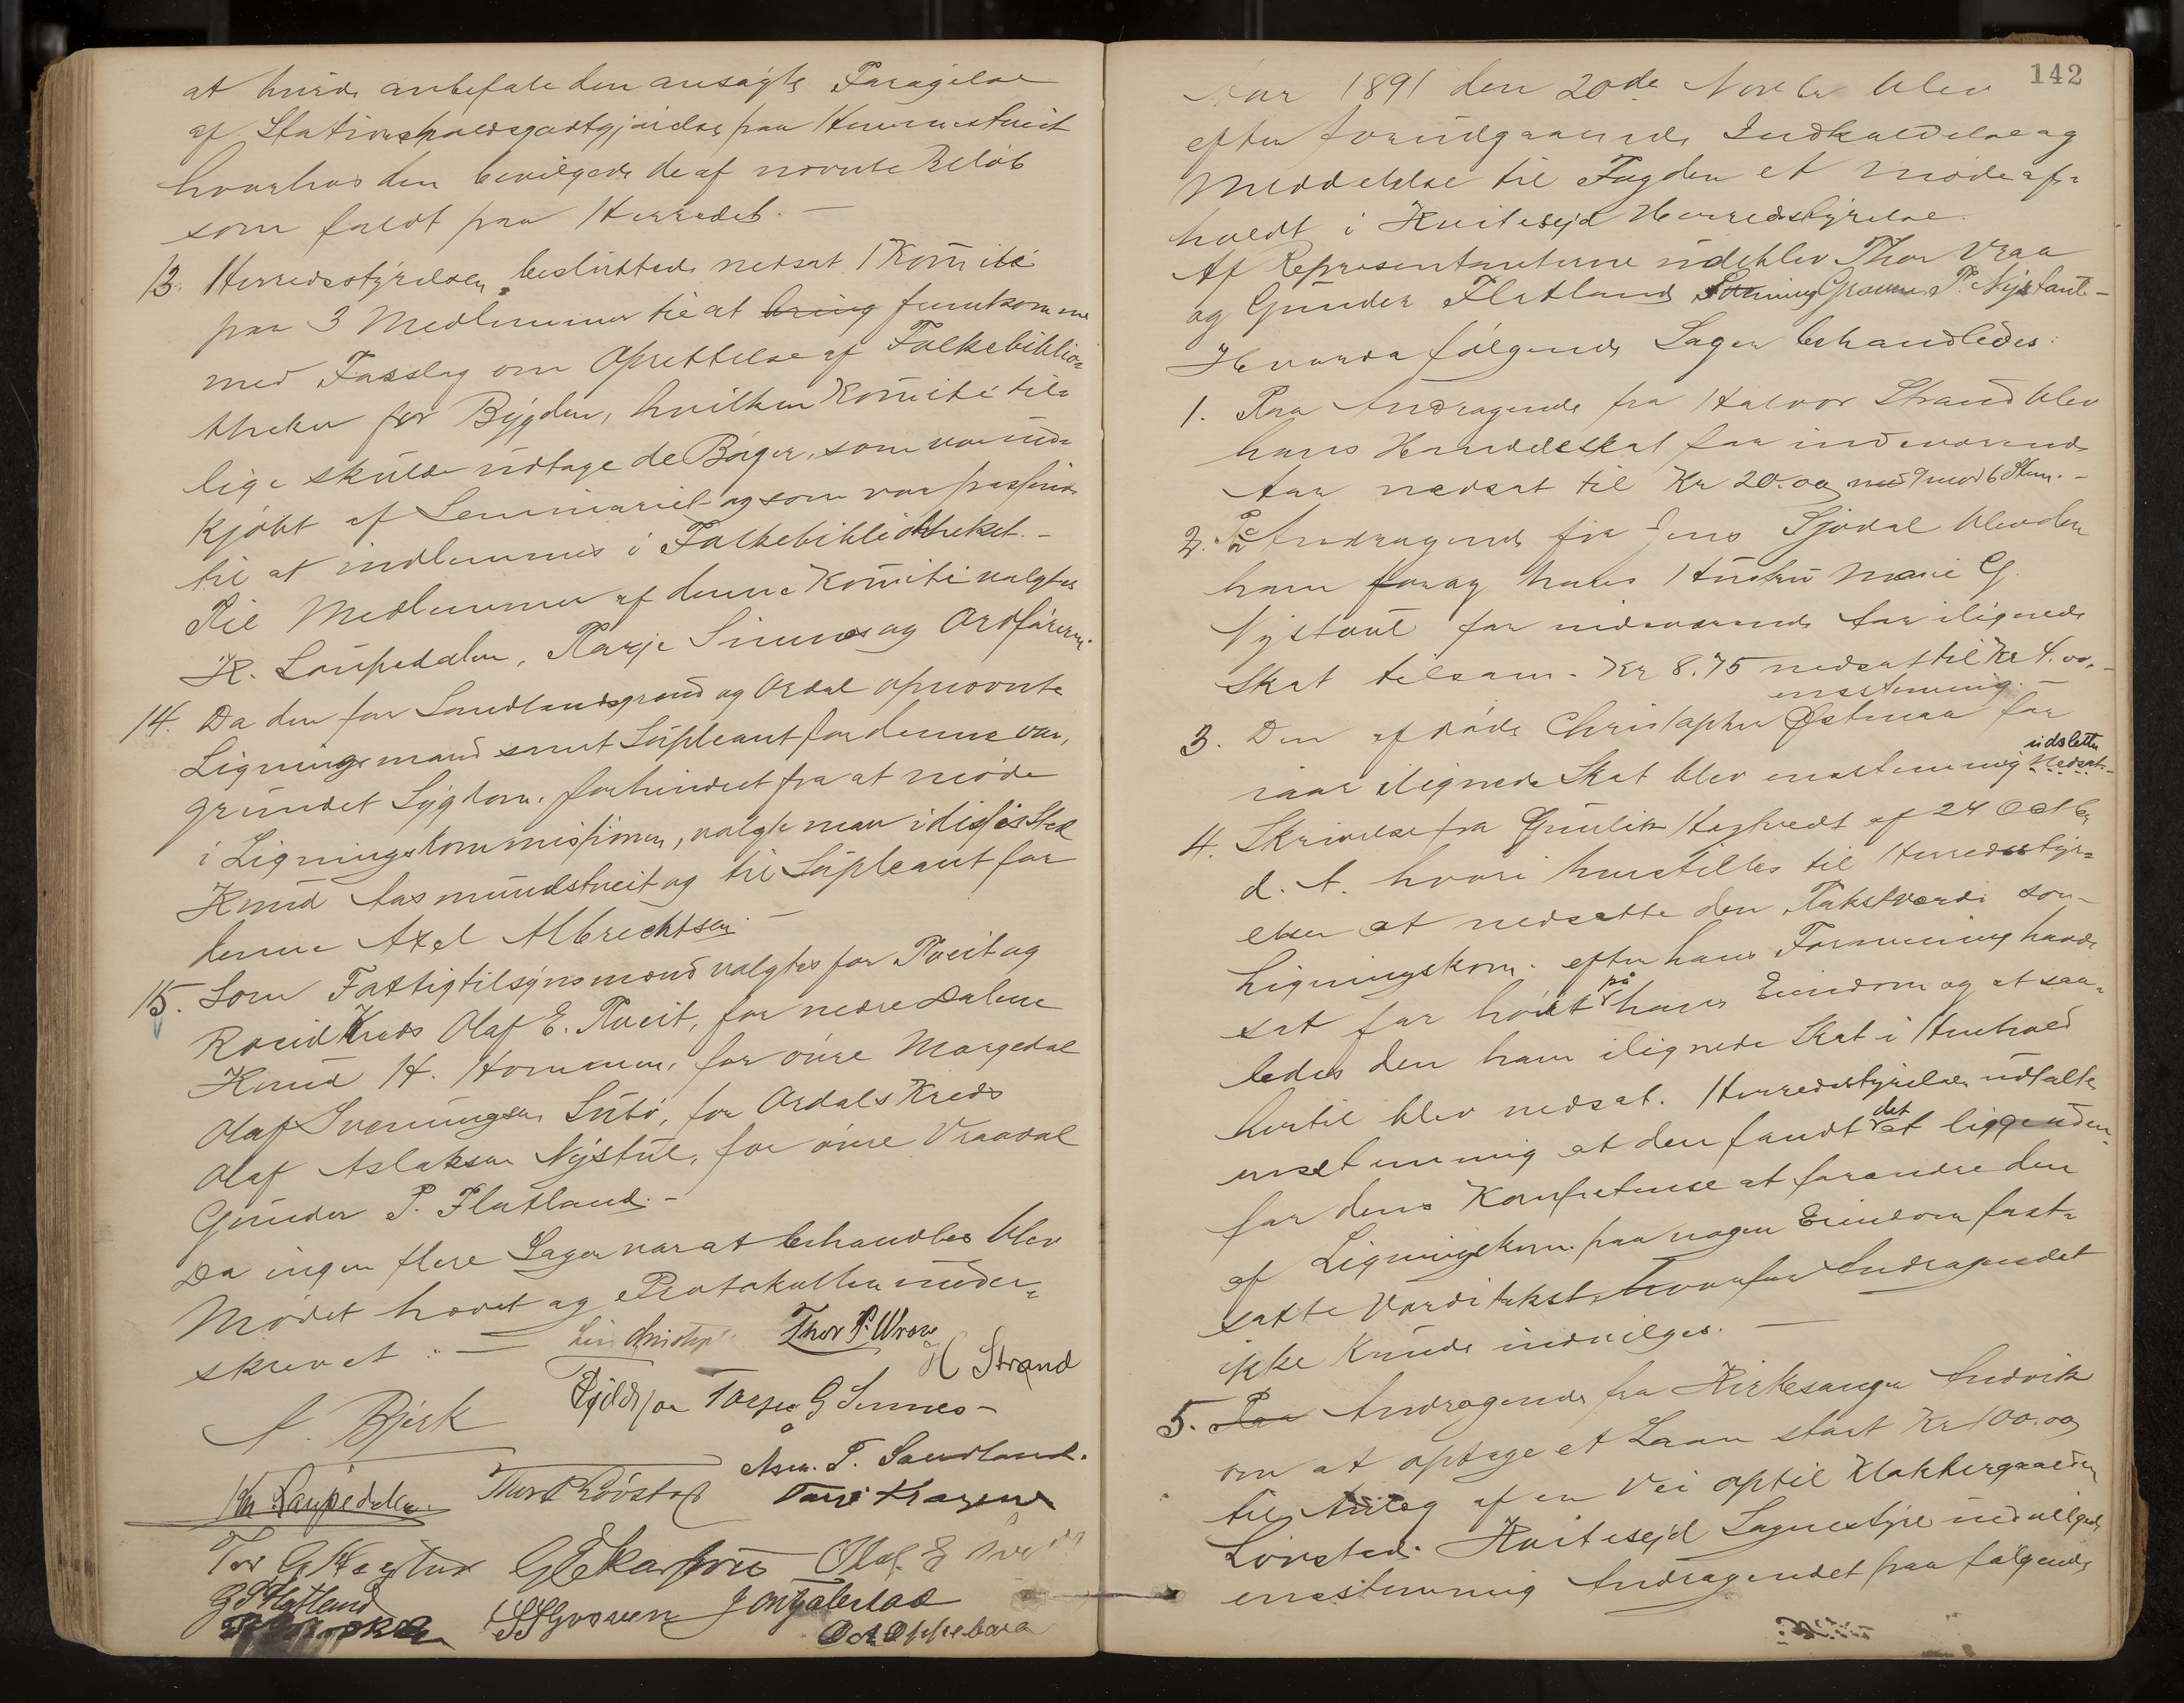 at burde anbefale den ansøgte Forøgelse
af Stationsholdsgodtgjørelse paa Hemmestveit
hvorhos den bevilgede de af nævnte Beløb
som faldt paa Herredet. —
13. Herredsstyrelsen besluttede nedsat 1 Komite
paa 3 Medlemmer til at bring fremkomme
med Forslag om Oprettelse af Folkebiblio=
theker for Bygden, hvilken Komite til=
lige skulde udtage de Bøger, som var ind=
kjøbt af Seminariet og som var passende
til at indlemmes i Folkebibliotheket. -
Til Medlemmer af denne Komite valgtes
K. Loupedalen, Tarje Sinnes og Ordføreren.
14. Da den for Sundlandsgrend og Ordal opnævnte
Ligningsmand samt Supleant for denne var,
grundet Sygdom, forhindret fra at møde
i Ligningskommissionen, valgte man i disses Sted
Knud Aasmundstveit og til Supleant for
denne Axel Albrechtsen. —
15. Som Fattigtilsynsmænd valgtes for Tveit og
Roeid Kreds Olaf E. Tveit, for nedre Dalene
Knud H. Hommen, for øvre Morgedal
Olaf Sveinungsen Sudbø, for Ordals Kreds
Olaf Aslaksen Nystul, for øvre Vraadal
Gunder P. Flatland. -
Da ingen flere Sager var at behandles blev
Mødet hævet og Protokollen under=
skrevet :—
Thor P. Wraa
H Strand
A. Bjerk
Tarje G Sinnes -
Asm. T. Sandland.
Kn. Laupedalen
Olaf. E
G P Flatland
142
Aar 1891 den 20de Novbr blev
efter forudgaaende Indkaldelse og
Meddelelse til Fogden et Møde af=
holdt i Kvitesejd Herredsstyrelse.
Af Repræsentanterne udeblev Thor Vraa
og Gunder Flatland
Hvorda følgende Sager behandledes:
1. Paa Andragende fra Halvor Strand blev
hans Herredsskat for indeværende
Aar nedsat til Kr 20.00 med 9 mod 6 Stem. -
2. Paa Andragende fra Jens Sjødal blev den
ham for og hans Hustru Marie G.
Nystaul for indeværende Aar ilignede
Skat tilsam. Kr 8.75 nedsat til Kr 4.00. -
enstemmig. —
3. Den afdøde Christopher Østmaa for
iaar ilignede Skat blev enstemmig nedsat. udslettet
4. Skrivelse fra Gunlik Haytvedt af 24 Octbr
d. A. hvori henstilles til Herredsstyr=
elsen at nedsætte den Takstværdi som
Ligningskom. efter hans Formening havde
sat for høit på hans Eiendom og at saa=
ledes den ham ilignede Skat i Henhold
hertil blev nedsat. Herredsstyrelsen udtalte
enstemmig at den fandt det at ligge uden=
for dens Kompetense at forandre den
af Ligningskom. paa nogen Eiendom fast=
satte Værditakst, hvorfor Andragendet
ikke kunde indvilges. —
5. Paa Andragende fra Kirkesanger Andvik
om at optage et Laan stort Kr 100.00
til Anlæg af en Vei optil Klokkergaarden
Lønstad. Kvitesejd Sognestyre indvilgede
enstemmig Andragendet paa følgende